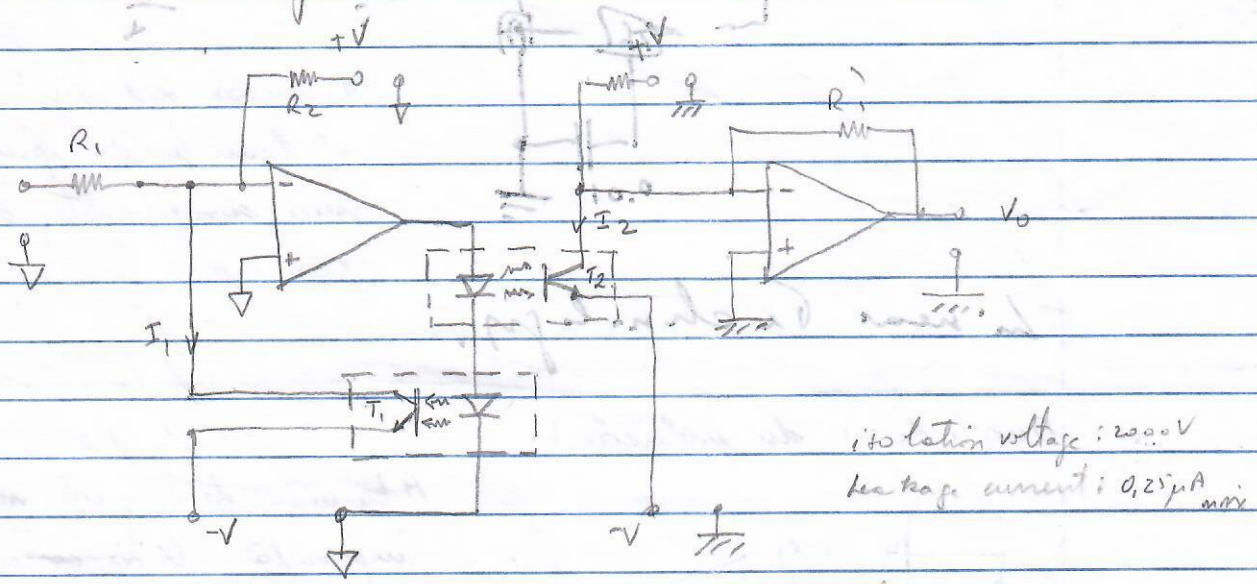 +V
+V
R2
R1
R1
-
-
I2
V0
+
+
T2
I1
T1
isolation voltage : 2000V
Leakage current : 0,25µA
-V
-V